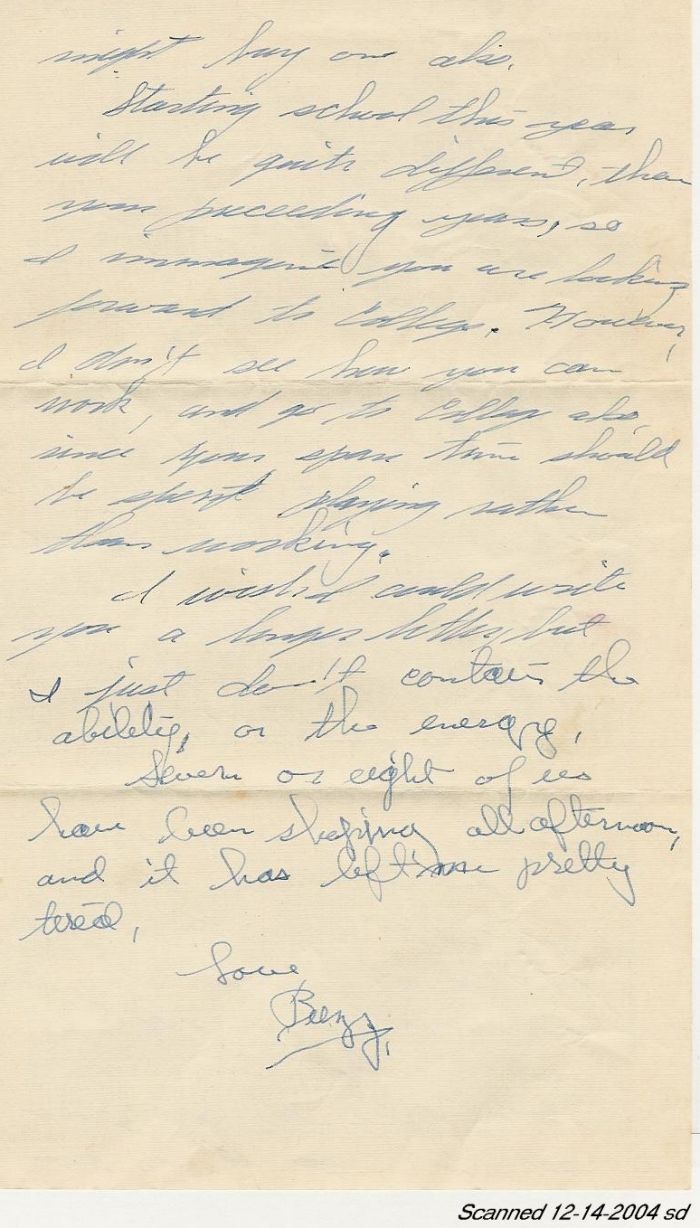 might buy one also.
Starting school this year
will be quite different, than
your preceeding years, so
I immagine you are looking
forward to College. However,
I don't see how you can
work, and go to College also,
since your spare time should
be spent playing rather
than working.
I wish I could write
you a longer letter, but
I just don't contain the
ability, or the energy,
Seven or eight of us
have been shoping all afternoon,
and it has left me pretty
tered,
Love
Scanned 12-14-2004 sd